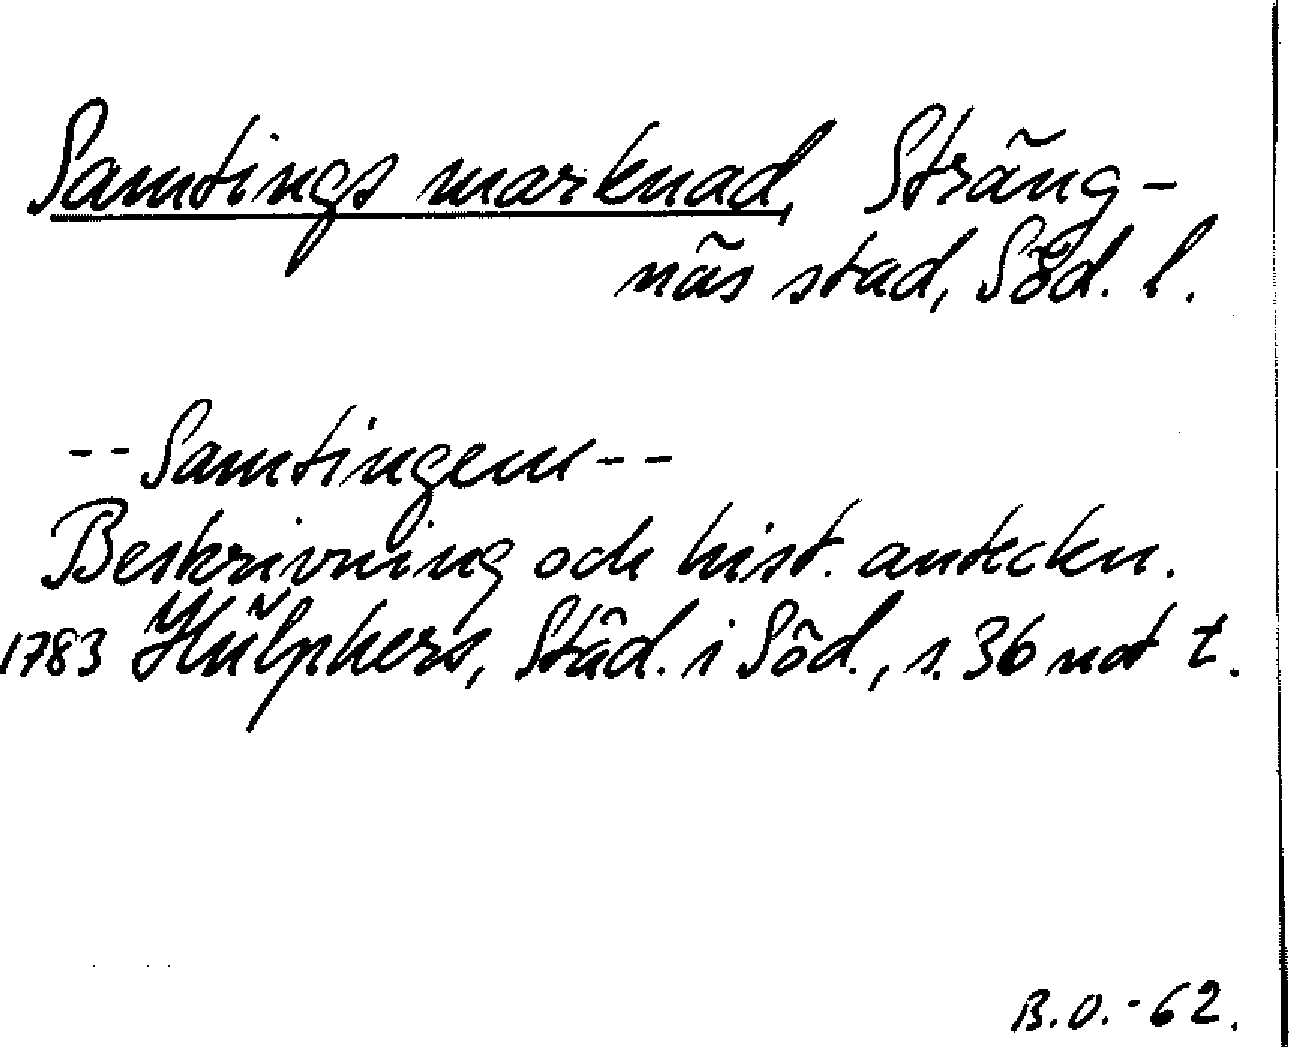 Samtings marknad, Sträng-
näs stad, Söd. l.
-- Samtingem --
Beskrivning och hist. anteckn.
1783 Hülphers, Städ. i Söd., s. 36 not t.
B.O.-62.